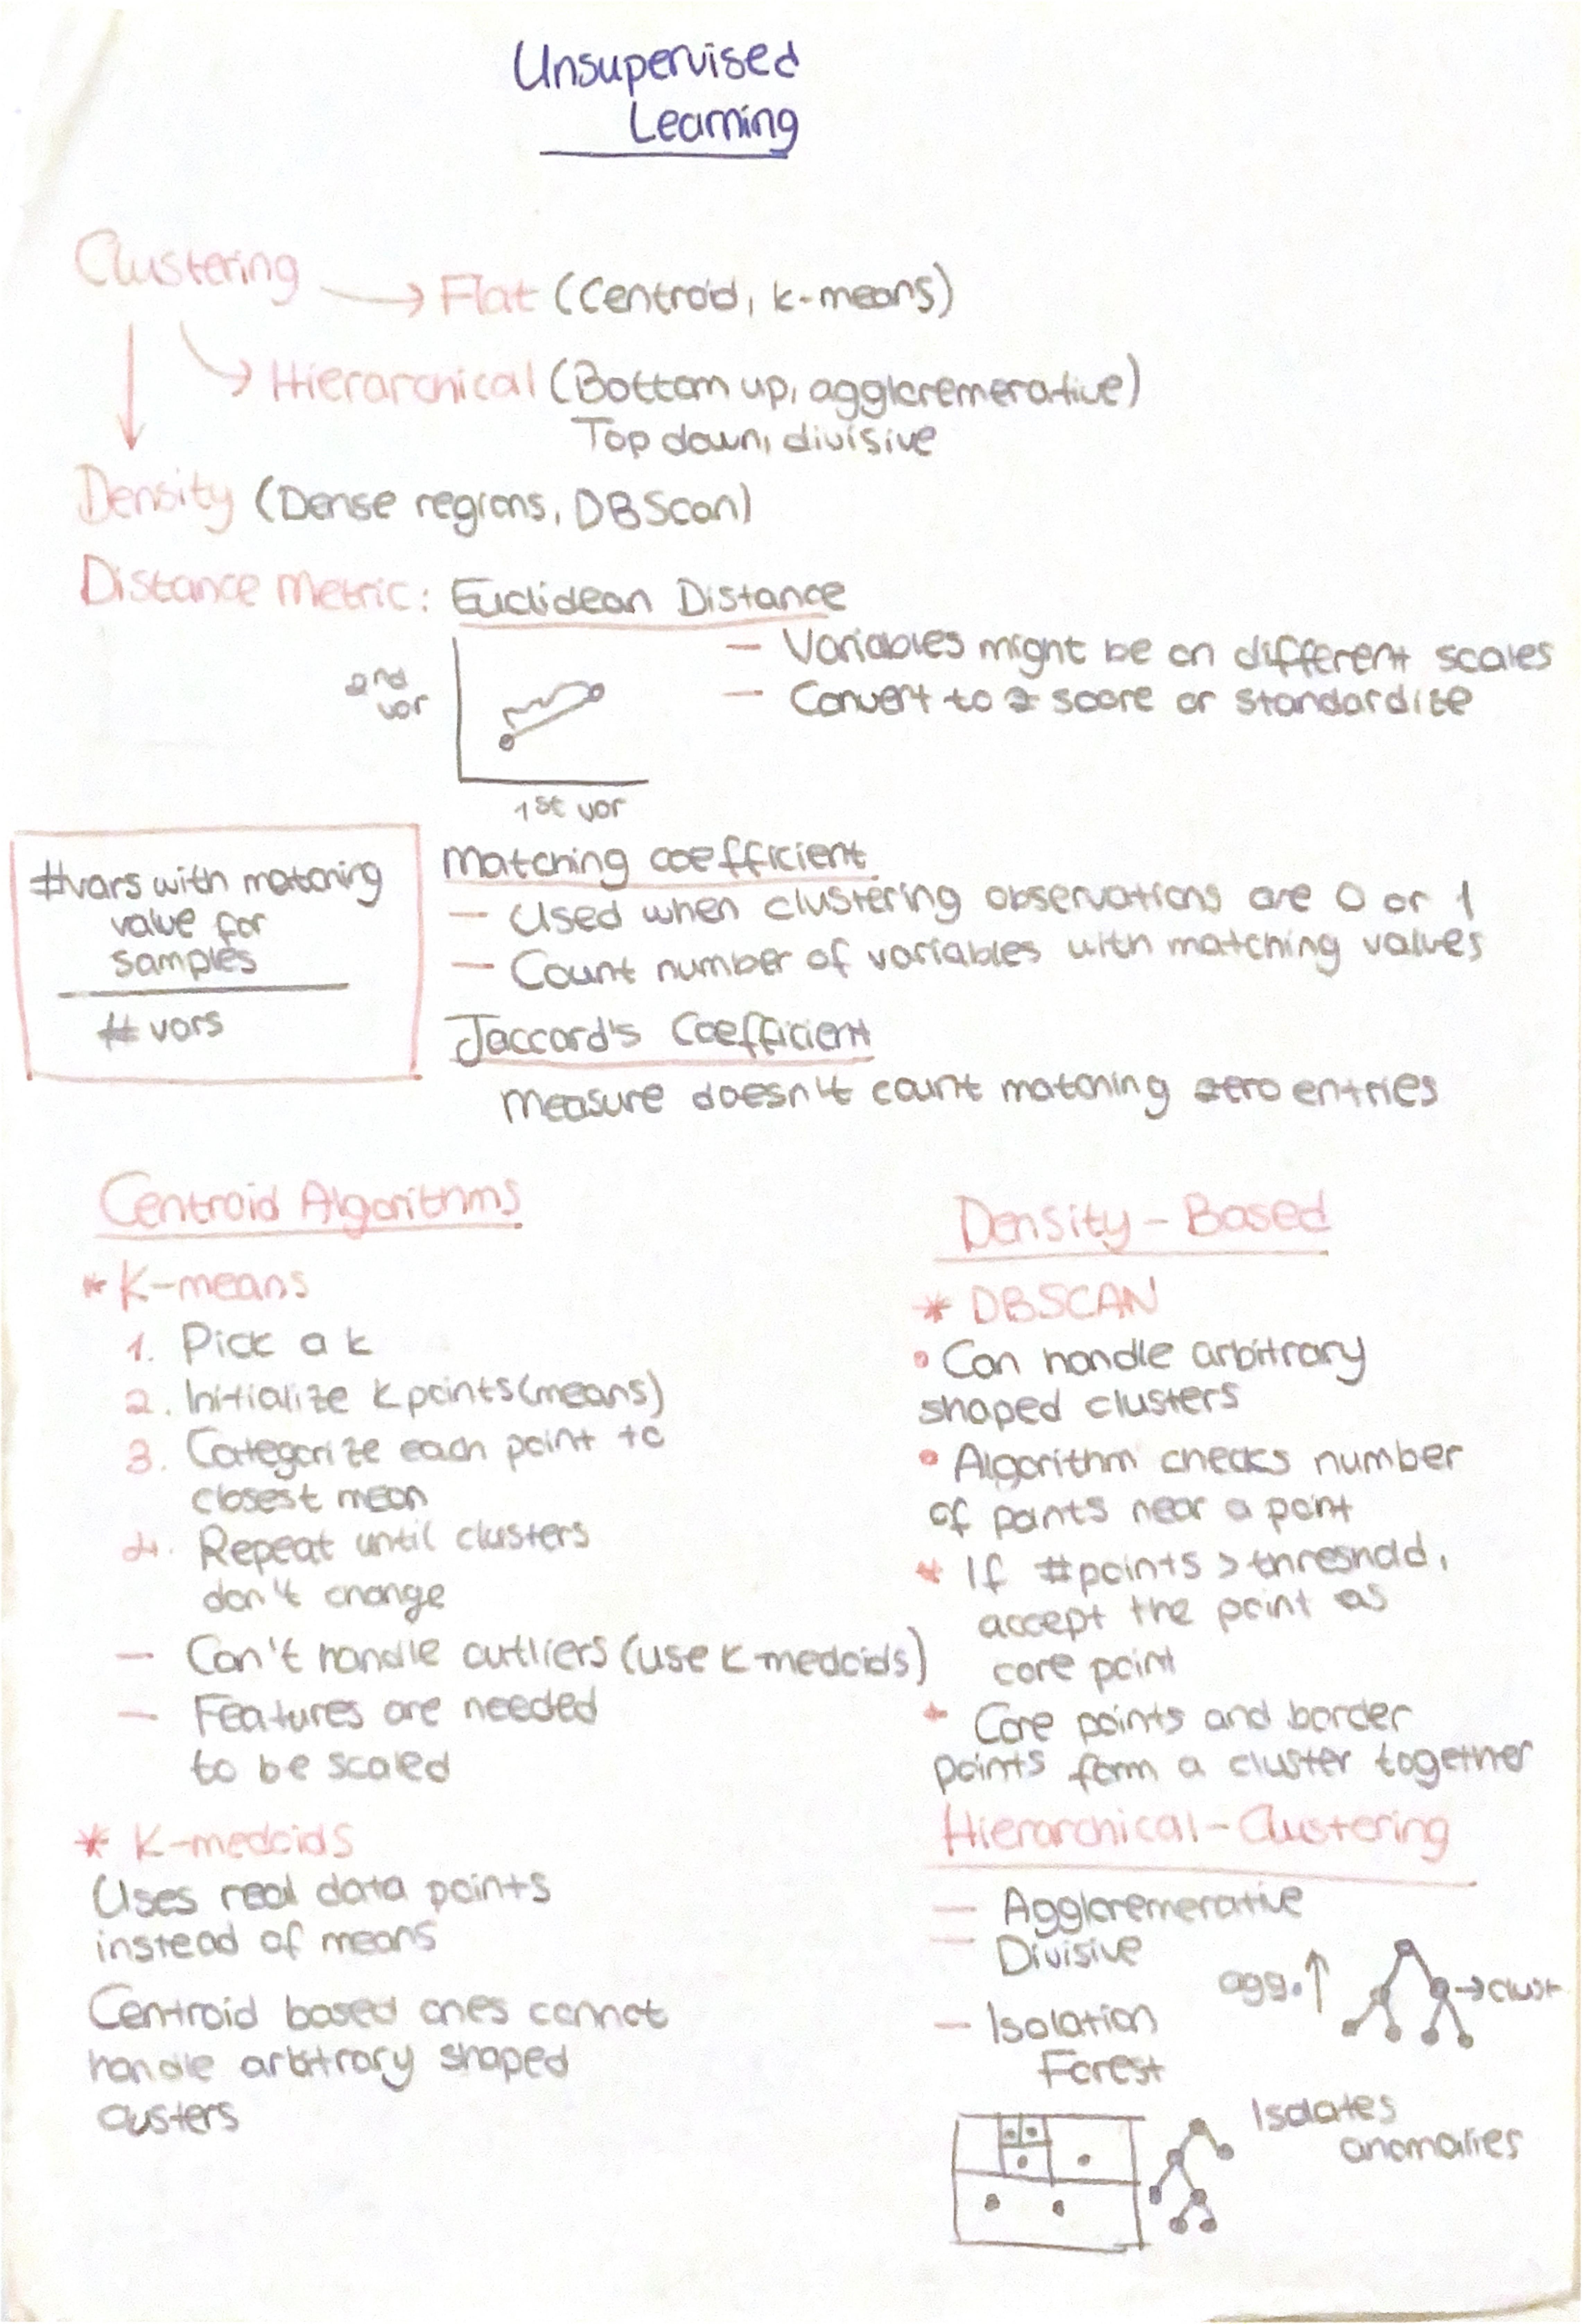 Unsupervised
Learning
Clustering
→ Flat (Centroid, k-means)
→ Hierarchical (Bottom up, aggloremerative)
Top down, divisive
Density (Dense regions, DBScan)
Distance Metric: Euclidean Distance
— Variables might be on different scales
— Convert to z score or standardize
2nd
var
1st var
#vars with matching
value for
samples
# vars
Matching coefficient
— Used when clustering observations are 0 or 1
— Count number of variables with matching values
Jaccard's Coefficient
Measure doesn't count matching zero entries
Centroid Algorithms
* K-means
1. Pick a k
2. Initialize k points (means)
3. Categorize each point to
closest mean
4. Repeat until clusters
don't change
— Can't handle outliers (use K-medoids)
— Features are needed
to be scaled
* K-medoids
Uses real data points
instead of means
Centroid based ones cannot
handle arbitrary shaped
clusters
Density-Based
* DBSCAN
• Can handle arbitrary
shaped clusters
• Algorithm checks number
of points near a point
* If #points > threshold,
accept the point as
core point
* Core points and border
points form a cluster together
Hierarchical-Clustering
— Aggloremerative
— Divisive
agg. ↑
→ clust
— Isolation
Forest
Isolates
anomalies